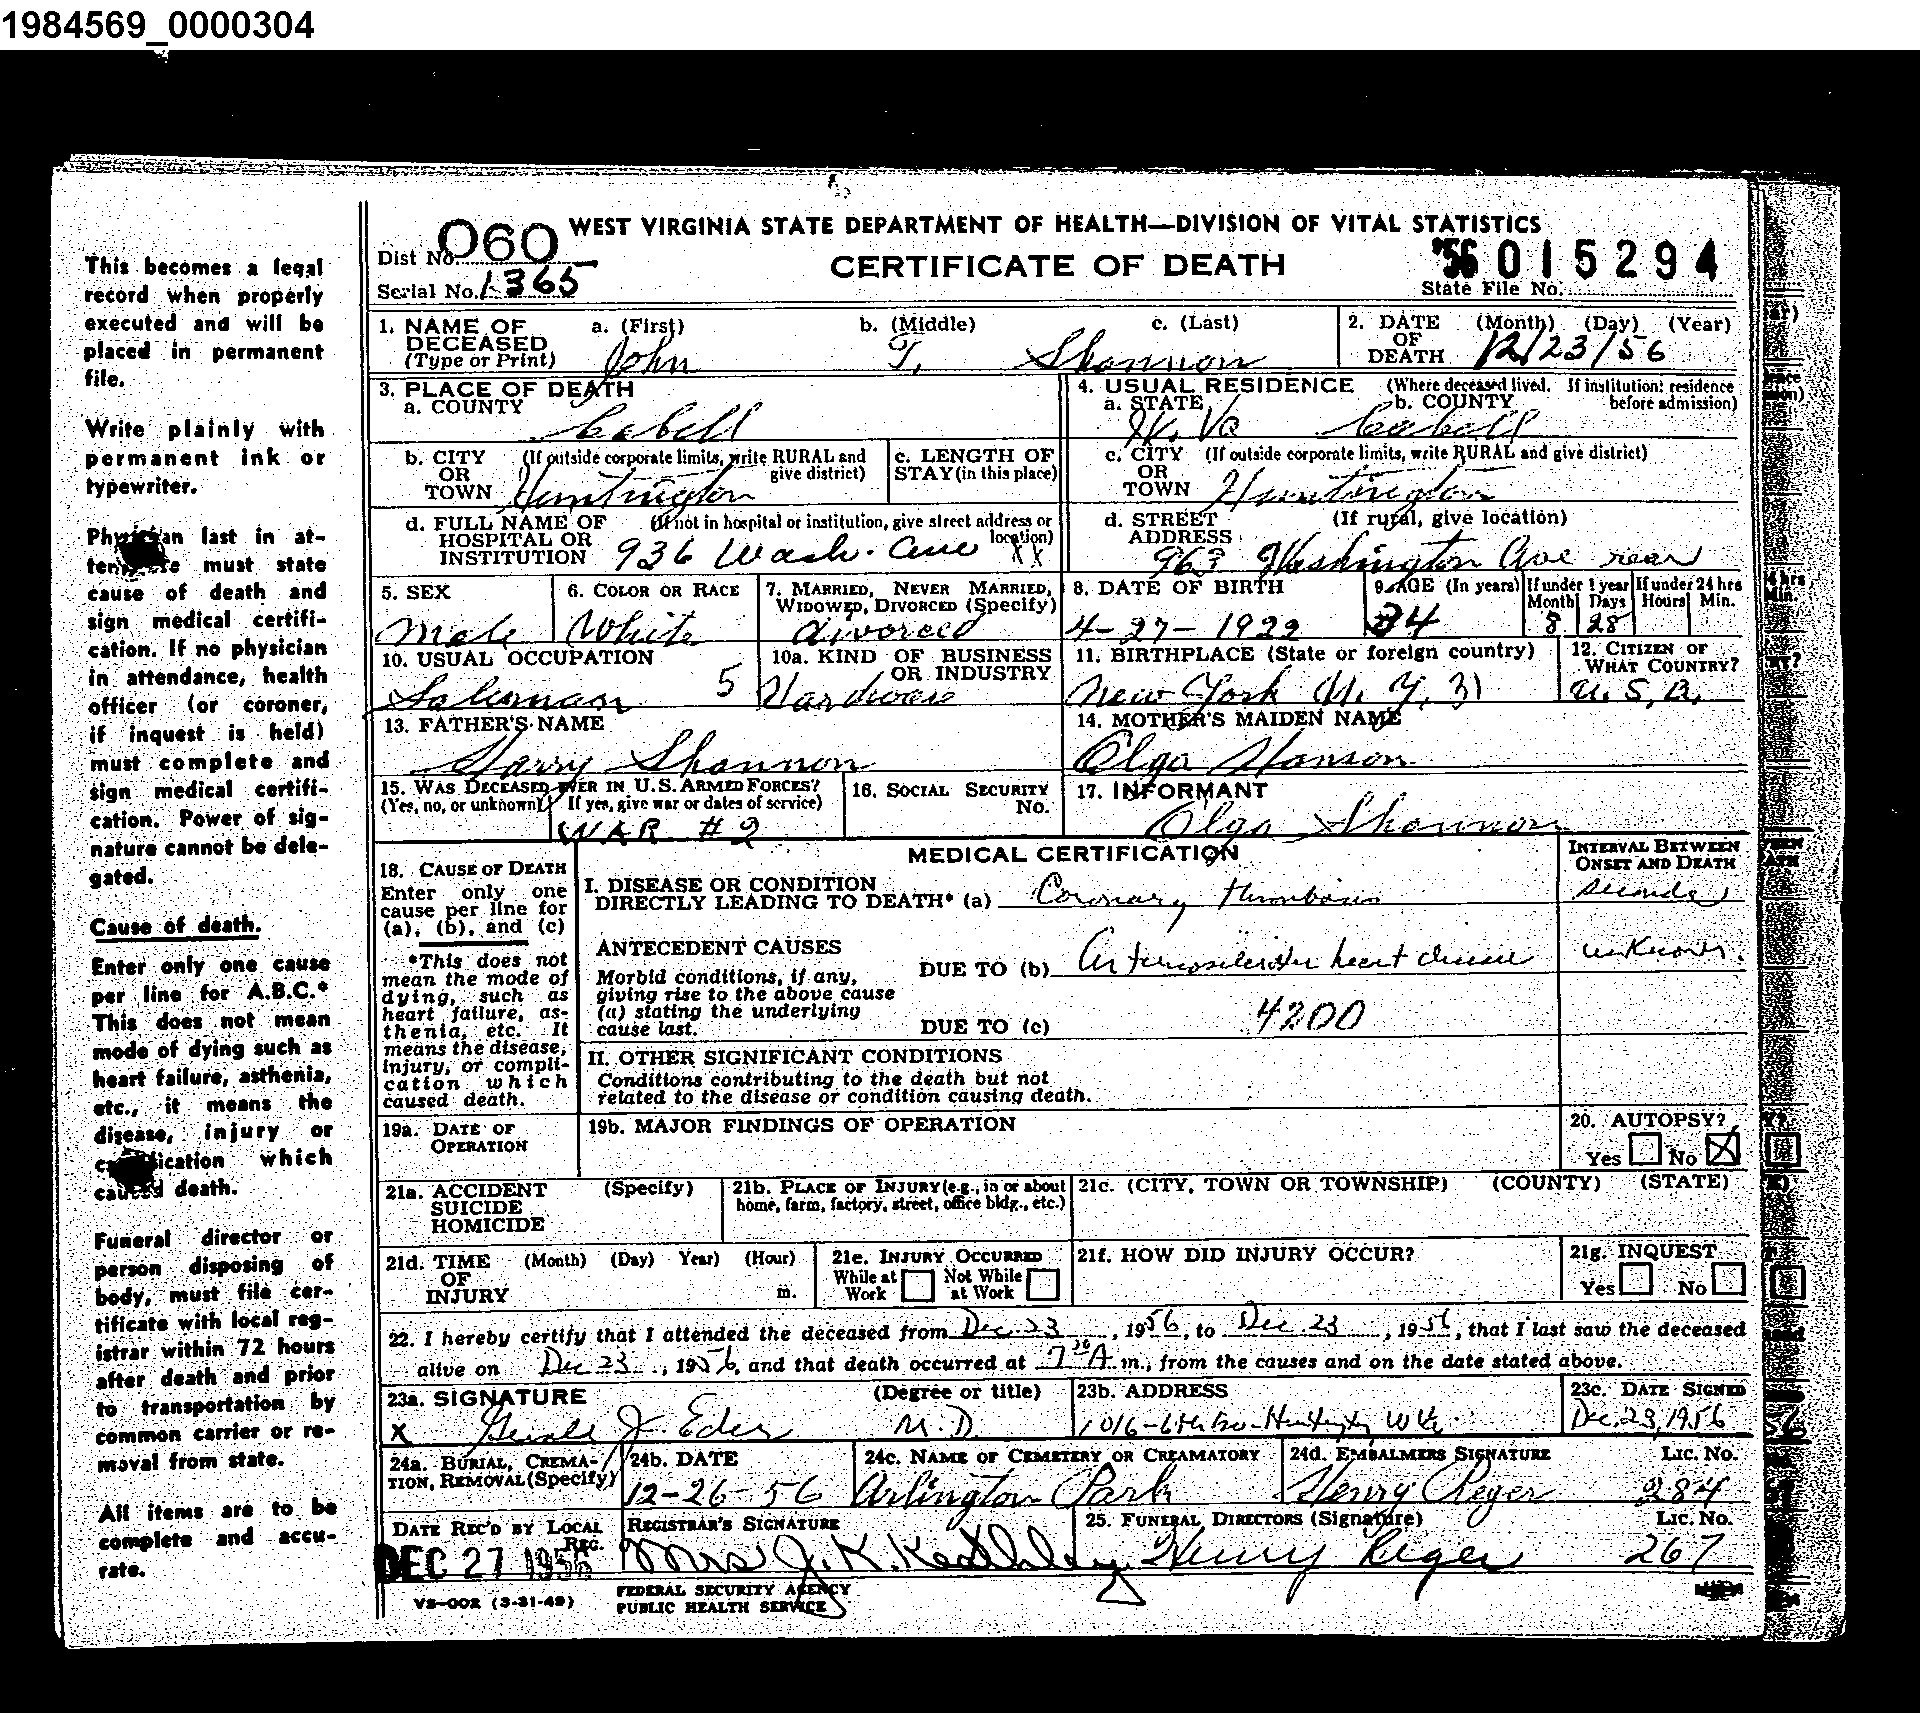 1984569_0000304
This becomes a legal
record when properly
executed and will be
placed in permanent
file.
Write plainly with
permanent ink or
typewriter.
Physician last in at-
must state
cause of death and
sign medical certifi-
cation. If no physician
in attendance, health
officer (or coroner,
if inquest is held)
must complete and
sign medical certifi-
cation. Power of sig-
nature cannot be dele-
gated.
Cause of death.
Enter only one cause
per line for A.B.C.*
This does not mean
mode of dying such as
heart failure, asthenia,
etc., it means the
disease, injury or
which
caused death.
Funeral director or
person disposing of
body, must file cer-
tificate with local reg-
istrar within 72 hours
after death and prior
to transportation by
common carrier or re-
moval from state.
All items are to be
complete and accu-
rate.
WEST VIRGINIA STATE DEPARTMENT OF HEALTH—DIVISION OF VITAL STATISTICS
Dist No. 060
CERTIFICATE OF DEATH
'56 015294
Serial No. 1365
State File No.
1. NAME OF DECEASED (Type or Print) a. (First) b. (Middle) c. (Last)
John T. Shannon
2. DATE OF DEATH (Month) (Day) (Year)
12/23/56
3. PLACE OF DEATH
a. COUNTY
Cabell
4. USUAL RESIDENCE (Where deceased lived. If institution: residence before admission)
a. STATE b. COUNTY
W. Va Cabell
b. CITY OR TOWN (If outside corporate limits, write RURAL and give district)
Huntington
c. LENGTH OF STAY (in this place)
c. CITY OR TOWN (If outside corporate limits, write RURAL and give district)
Huntington
d. FULL NAME OF HOSPITAL OR INSTITUTION (If not in hospital or institution, give street address or location)
936 Wash. Ave XX
d. STREET ADDRESS (If rural, give location)
Washington Ave rear
5. SEX
Male
6. COLOR OR RACE
White
7. MARRIED, NEVER MARRIED, WIDOWED, DIVORCED (Specify)
divorced
8. DATE OF BIRTH
4-27-1922
9. AGE (In years)
34
If under 1 year Month Days
8 28
If under 24 hrs Hours Min.
10. USUAL OCCUPATION
Salesman 5
10a. KIND OF BUSINESS OR INDUSTRY
Hardware
11. BIRTHPLACE (State or foreign country)
New York (N. Y. 31
12. CITIZEN OF WHAT COUNTRY?
U. S. A.
13. FATHER'S NAME
Harry Shannon
14. MOTHER'S MAIDEN NAME
Olga Hanson
15. WAS DECEASED EVER IN U.S. ARMED FORCES?
(Yes, no, or unknown) If yes, give war or dates of service)
WAR #2
16. SOCIAL SECURITY No.
17. INFORMANT
Olga Shannon
MEDICAL CERTIFICATION
INTERVAL BETWEEN ONSET AND DEATH
18. CAUSE OF DEATH
Enter only one
cause per line for
(a), (b), and (c)
*This does not
mean the mode of
dying, such as
heart failure, as-
thenia, etc. It
means the disease,
injury, or compli-
cation which
caused death.
I. DISEASE OR CONDITION
DIRECTLY LEADING TO DEATH* (a) Coronary thrombosis
seconds
ANTECEDENT CAUSES
Morbid conditions, if any,
giving rise to the above cause
(a) stating the underlying
cause last.
DUE TO (b) Arteriosclerotic heart disease
unknown.
DUE TO (c)
4200
II. OTHER SIGNIFICANT CONDITIONS
Conditions contributing to the death but not
related to the disease or condition causing death.
19a. DATE OF OPERATION
19b. MAJOR FINDINGS OF OPERATION
20. AUTOPSY?
Yes No X
21a. ACCIDENT SUICIDE HOMICIDE (Specify)
21b. PLACE OF INJURY (e.g., in or about home, farm, factory, street, office bldg., etc.)
21c. (CITY, TOWN OR TOWNSHIP) (COUNTY) (STATE)
21d. TIME OF INJURY (Month) (Day) Year) (Hour) m.
21e. INJURY OCCURRED
While at Work Not While at Work
21f. HOW DID INJURY OCCUR?
21g. INQUEST
Yes No
22. I hereby certify that I attended the deceased from Dec. 23, 1956, to Dec 23, 1956, that I last saw the deceased
alive on Dec 23, 1956, and that death occurred at 7 30 A m., from the causes and on the date stated above.
23a. SIGNATURE (Degree or title)
X J. Eder M.D.
23b. ADDRESS
1016-6th Ave-Huntington W Va.
23c. DATE SIGNED
Dec. 23, 1956
24a. BURIAL, CREMA-
TION, REMOVAL (Specify)
24b. DATE
12-26-56
24c. NAME OF CEMETERY OR CREAMATORY
Arlington Park
24d. EMBALMERS SIGNATURE Lic. No.
Henry Reger 284
DATE REC'D BY LOCAL REG.
DEC 27 1956
REGISTRAR'S SIGNATURE
Mrs J. K.
25. FUNERAL DIRECTORS (Signature) Lic. No.
Henry Reger 267
VS-002 (3-31-49)
FEDERAL SECURITY AGENCY
PUBLIC HEALTH SERVICE